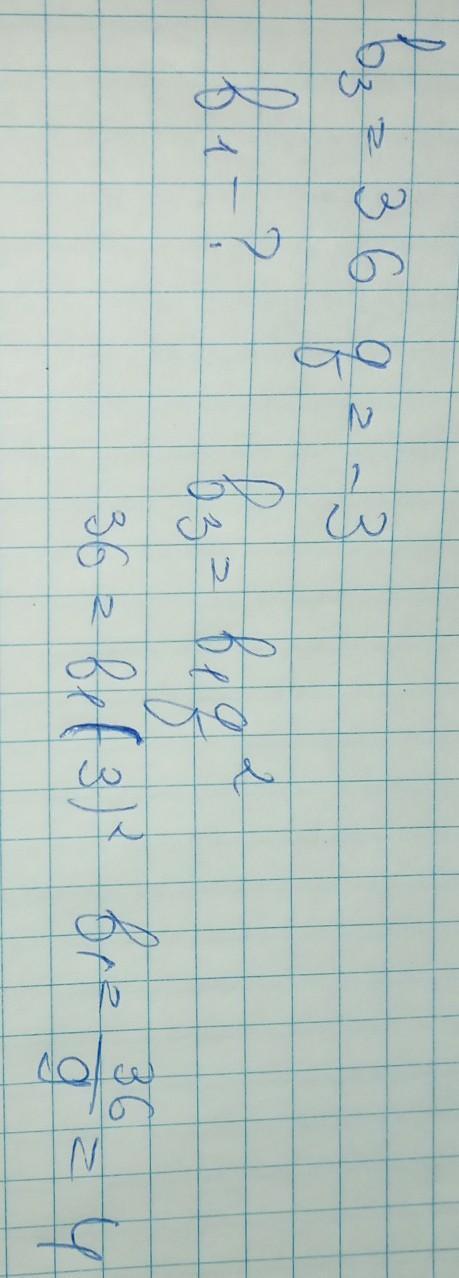 b3 = 36 q = -3
b1 - ?
b3 = b1 q²
36 = b1 (-3)² b1 = 36/9 = 4